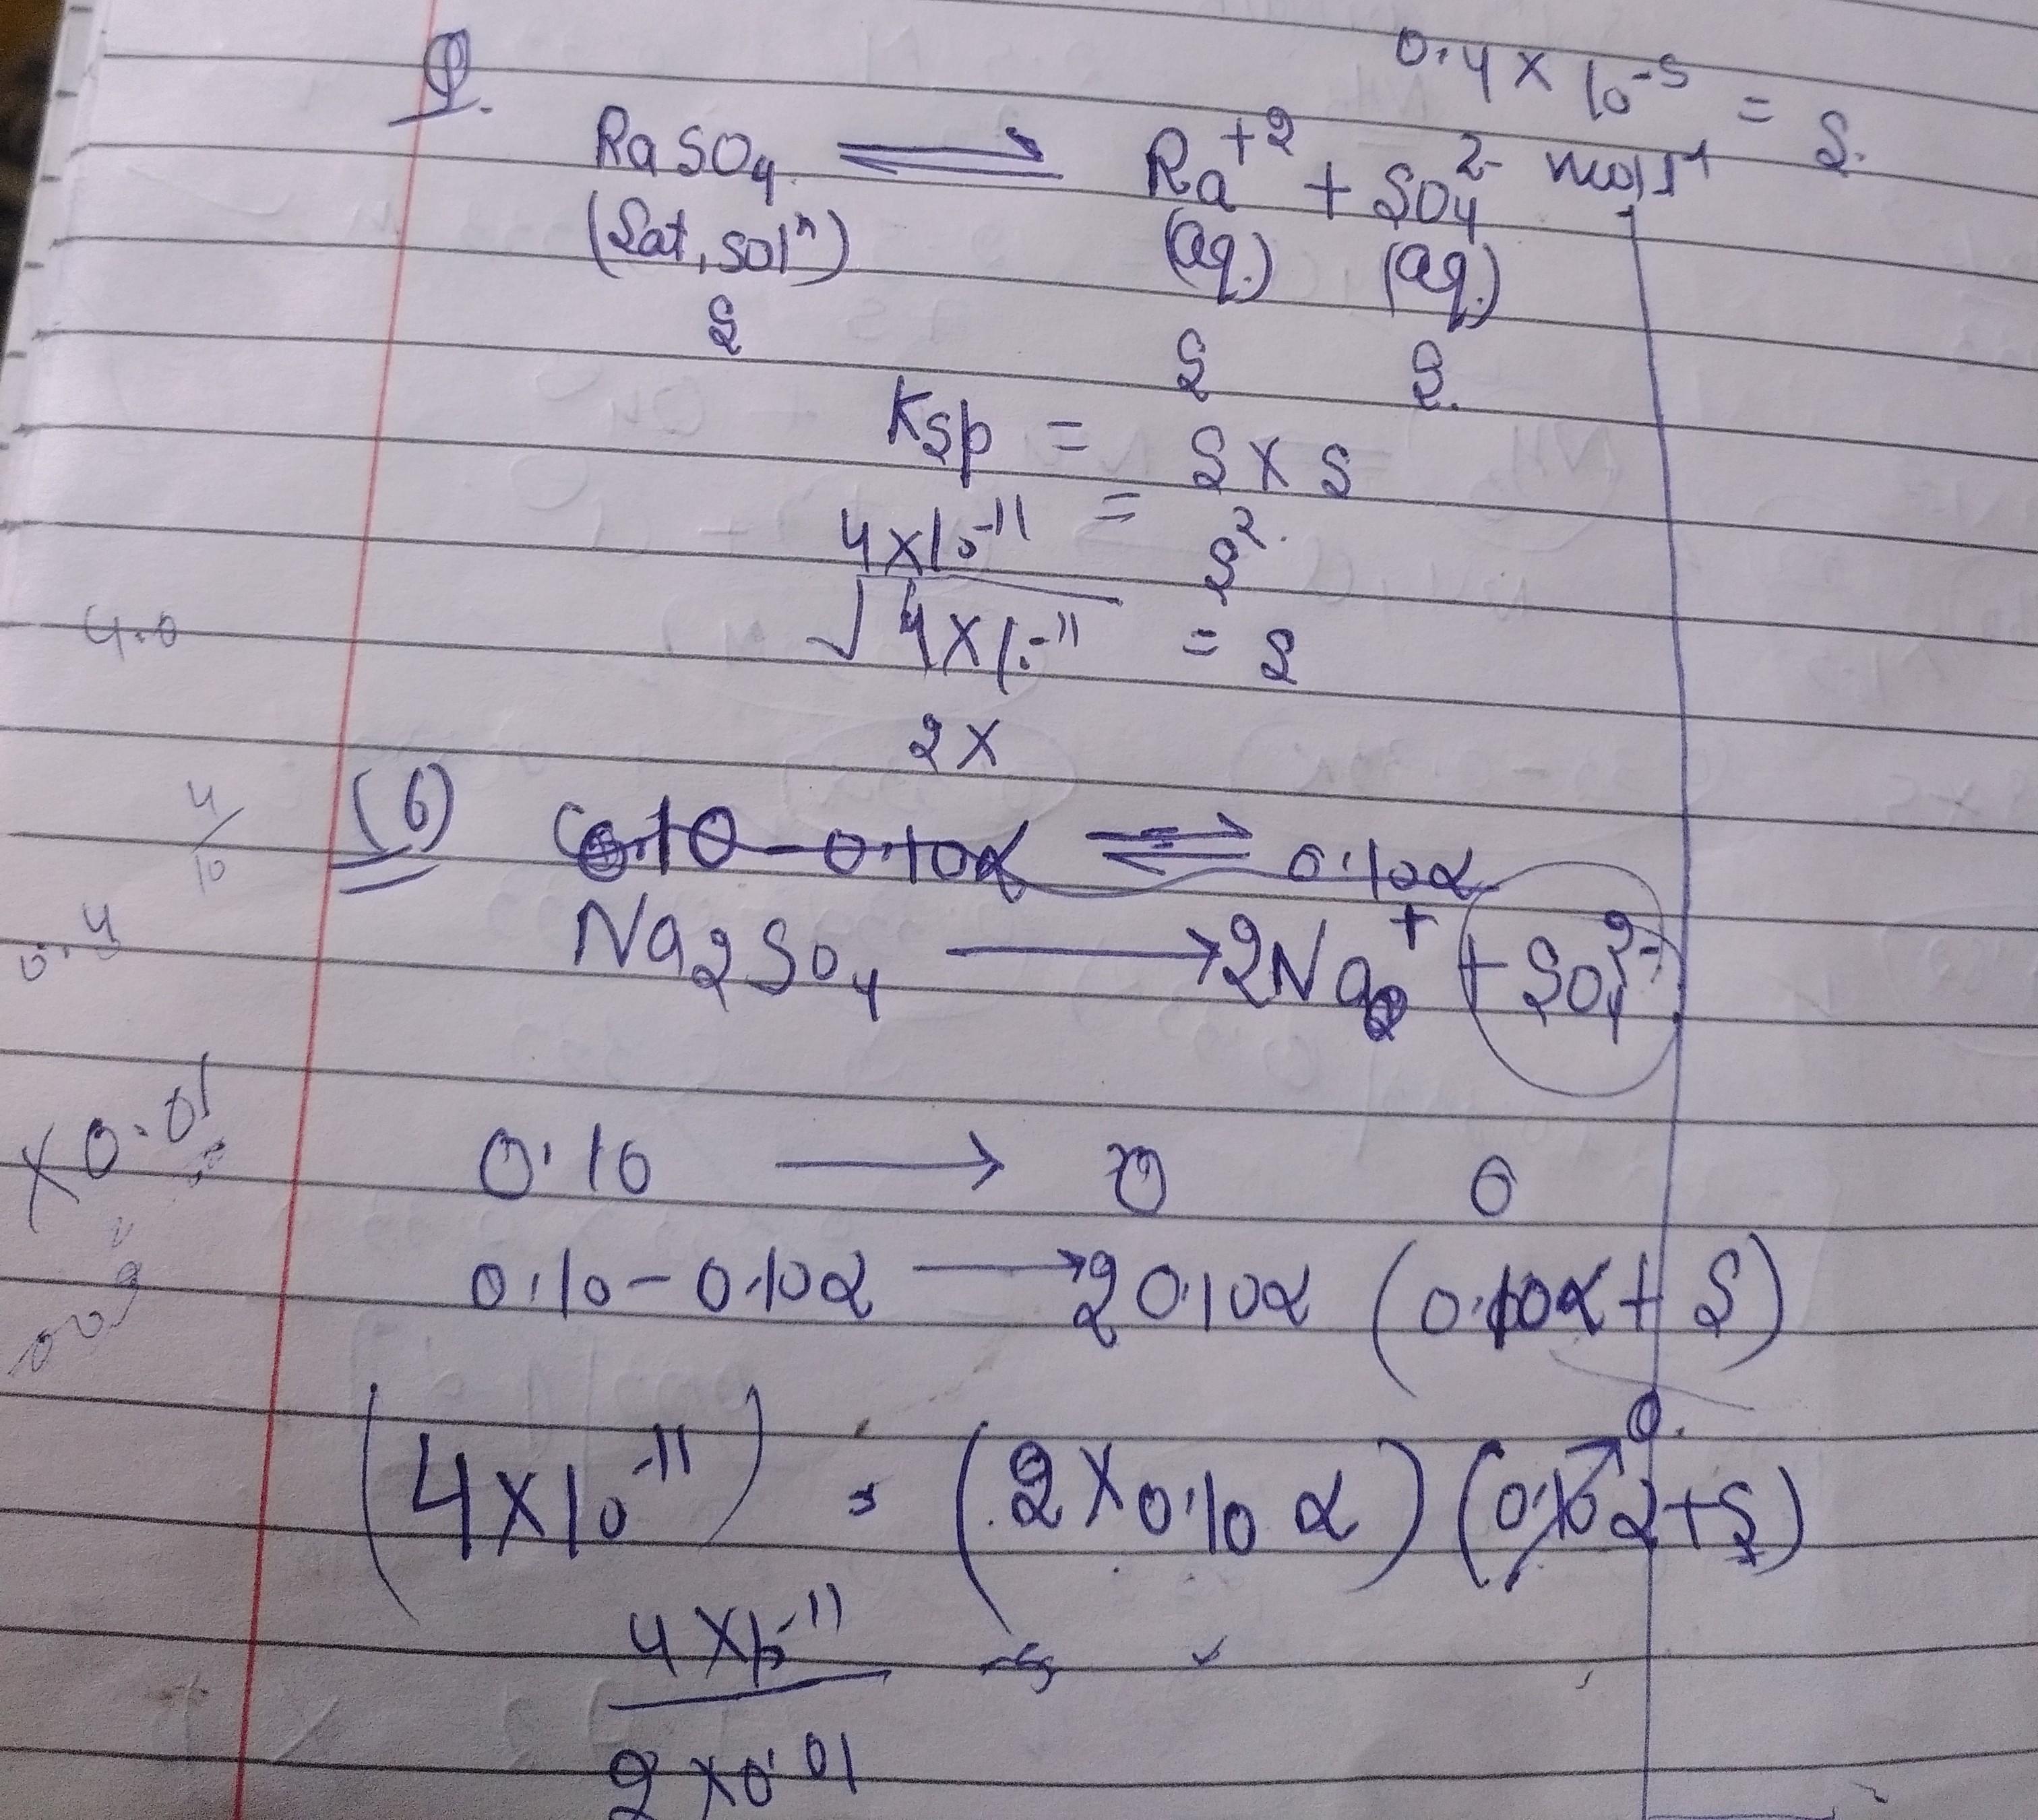 Q.
0.4 x 10⁻⁵ = S.
RaSO₄ ⇌ Ra⁺² + SO₄²⁻ mol L⁻¹
(Sat, solⁿ) (aq.) (aq.)
S S S.
Ksp = S x S
4x10⁻¹¹ = S².
√4x10⁻¹¹ = S
4.0
2x
4/10
(b) 0.10 - 0.10α ⇌ 0.10α
0.4
Na₂SO₄ → 2Na⁺ + SO₄²⁻
x 0.01
0.10 → 0 0
0.10 - 0.10α → 2 0.10α (0.10α + S)
(4x10⁻¹¹) = (2x0.10α) (0.10α + S)
0.
4x10⁻¹¹
2x0.01